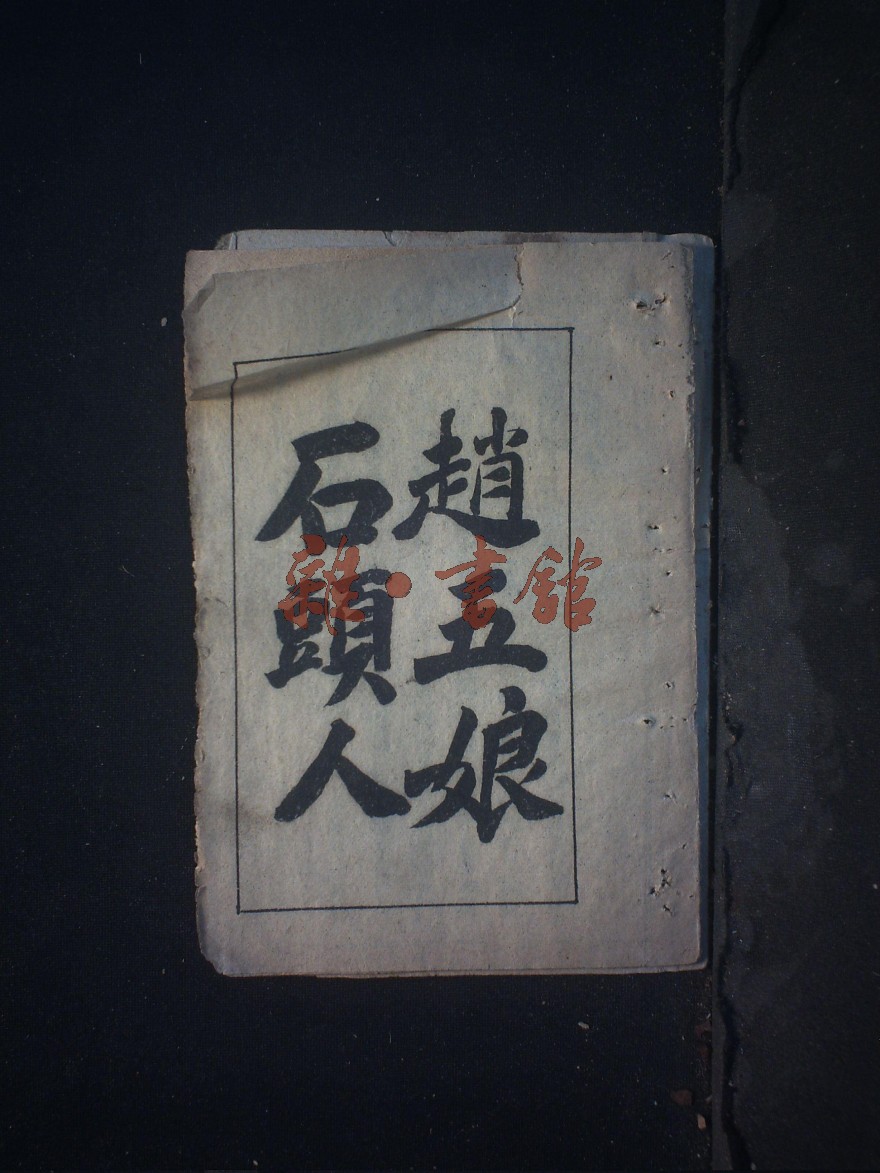 趙五娘
石頭人
雜·書館